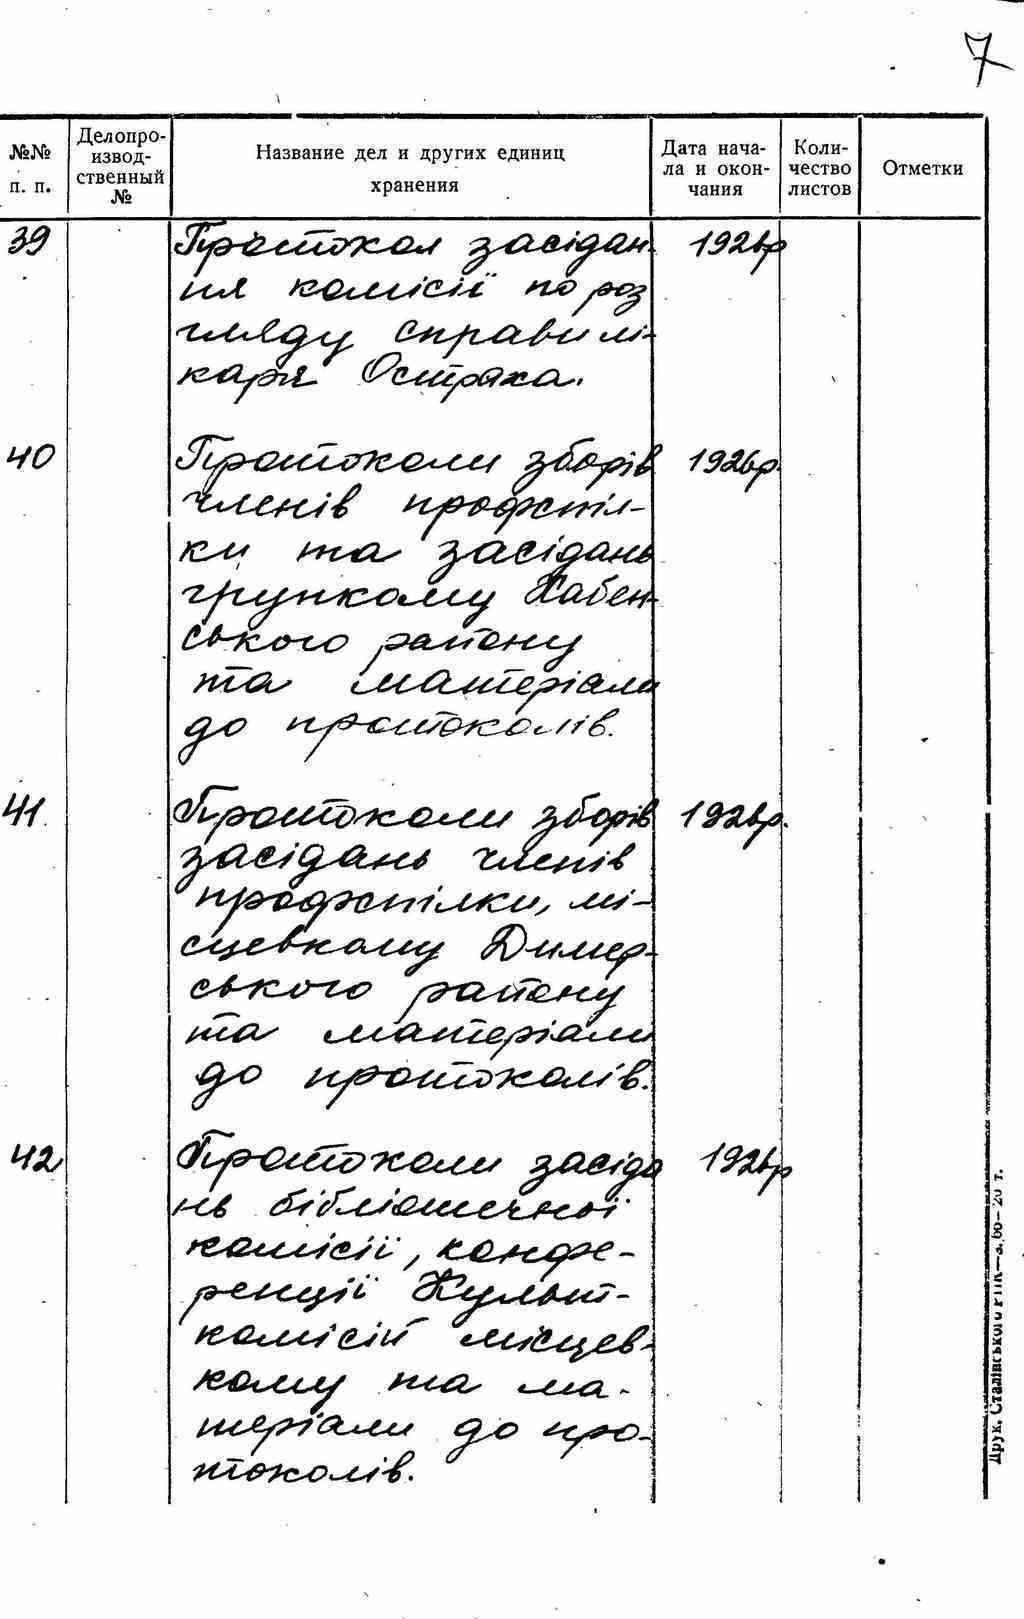 7
№№ п. п.
Делопро-
извод-
ственный
№
Название дел и других единиц
хранения
Дата нача-
ла и окон-
чания
Коли-
чество
листов
Отметки
39 Протокол засідан- 1926р
ня комісії по роз
гляду справи лі-
каря Остраха.
40 Протоколи зборів 1926р.
членів профспіл-
ки та засідань
групкому Хабен-
ського району
та матеріали
до протоколів.
41. Протоколи зборів 1926р.
засідань членів
профспілки, мі-
сцевкому Димер-
ського району
та матеріали
до протоколів.
42 Протоколи засіда 1926р
нь бібліотечної
комісії, конфе-
ренції Культ-
комісій місцев-
кому та ма-
теріали до про-
токолів.
Друк. Сталівського РПК